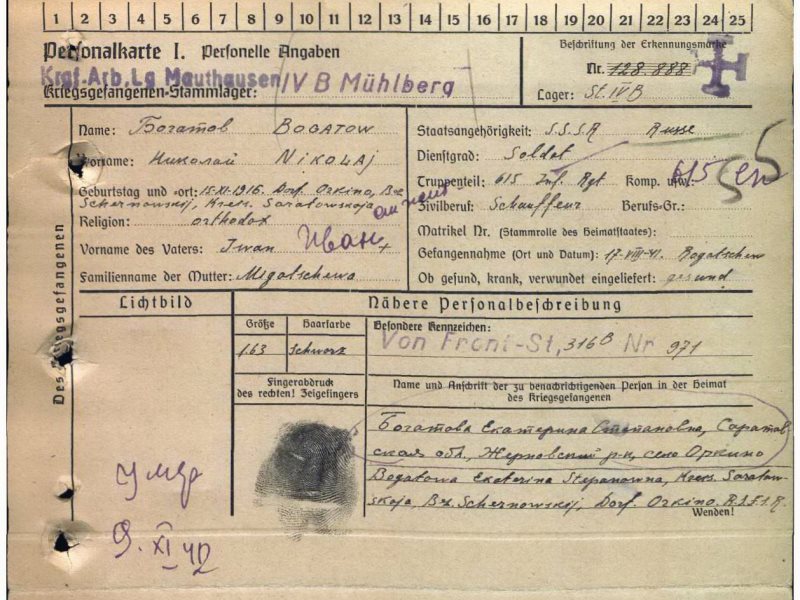 1 2 3 4 5 6 7 8 9 10 11 12 13 14 15 16 17 18 19 20 21 22 23 24 25
Personalkarte I. Personelle Angaben
Beschriftung der Erkennungsmarke
Krgf. Arb. Lg Mauthausen
Nr. 128 888
Kriegsgefangenen-Stammlager: IV B Mühlberg
Lager: St. IV B
Des Kriegsgefangenen
Name: Богатов BOGATOW
Staatsangehörigkeit: S.S.S.R Russe
Vorname: Николай NIKOLAJ
Dienstgrad: Soldat
Geburtstag und -ort: 15.XI.1916. Dorf. Orkino, Bez
Truppenteil: 615 Inf. Rgt Komp. usw.: 615 сп
Schernowskij, Kreis. Saratowskoja
Zivilberuf: Schauffeur Berufs-Gr.:
Religion: orthodox
Matrikel Nr. (Stammrolle des Heimatstaates):
Vorname des Vaters: Iwan Иван +
Gefangennahme (Ort und Datum): 17-VIII-41. Rogatschew
Familienname der Mutter:
Ob gesund, krank, verwundet eingeliefert: gesund
Lichtbild
Nähere Personalbeschreibung
Größe Haarfarbe Besondere Kennzeichen:
1.63 Schwarz Von Front-St. 316 B Nr 971
Fingerabdruck
des rechten! Zeigefingers
Name und Anschrift der zu benachrichtigenden Person in der Heimat
des Kriegsgefangenen
Богатова Екатерина Степановна, Саратов-
ская обл., Жерновский р-н, село Оркино
Bogatowa Ekaterina Stepanowna, Kreis. Saratow-
skoja, Bez. Schernowskoj, Dorf. Orkino. R.S.F.S.R.
Wenden!
умер
9. XI 42